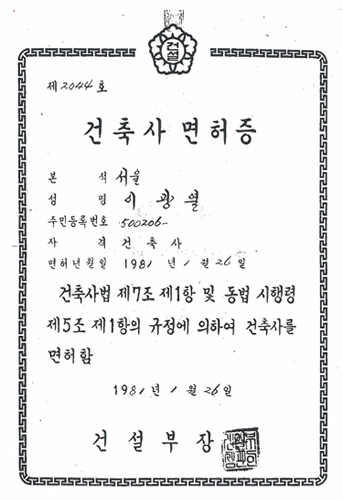 건설
제 2044 호
건축사면허증
본 적 서울
성 명 이광열
주민등록번호 500206-
자 격 건축사
면허년월일 1981 년 1 월 26 일
건축사법 제7조 제1항 및 동법 시행령
제5조 제1항의 규정에 의하여 건축사를
면허함
1981 년 1 월 26 일
건설부장